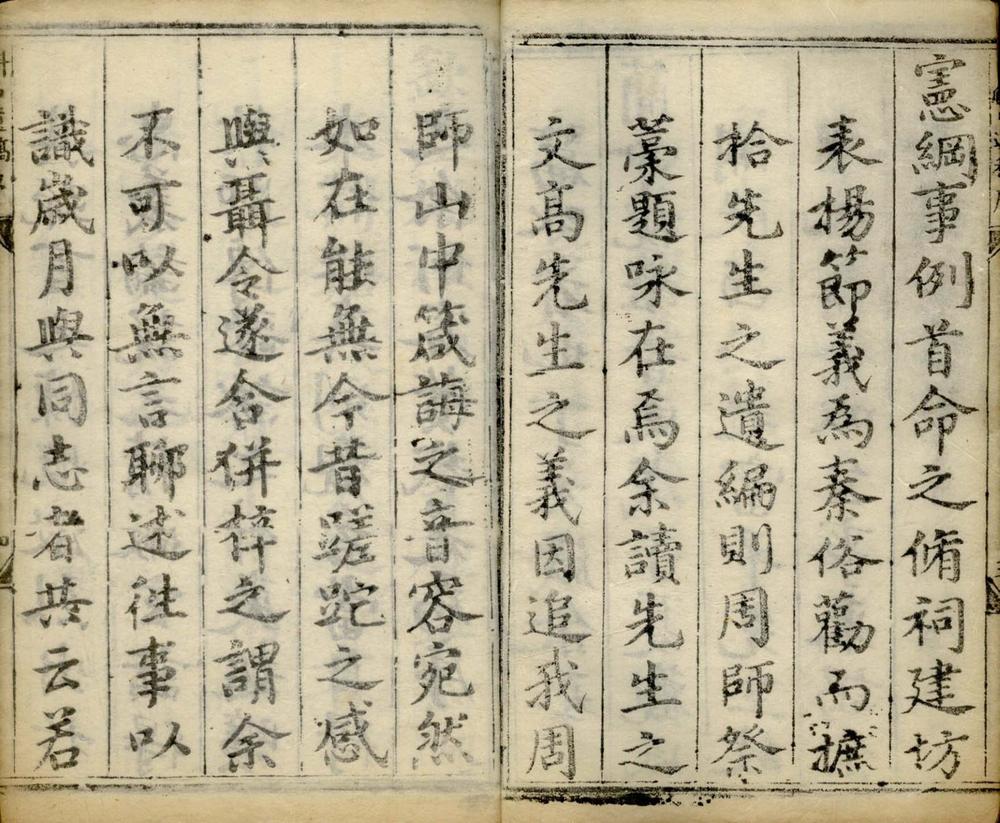 憲綱事例首命之脩祠建坊
表揚節義為秦俗勸而摭
拾先生之遺編則周師祭
藁題咏在焉余讀先生之
文高先生之義因追我周
師山中箴誨之音容宛然
如在能無今昔蹉跎之感
與聶令遂舍併梓之謂余
不可以無言聊述徃事以
識歲月與同志者共云若